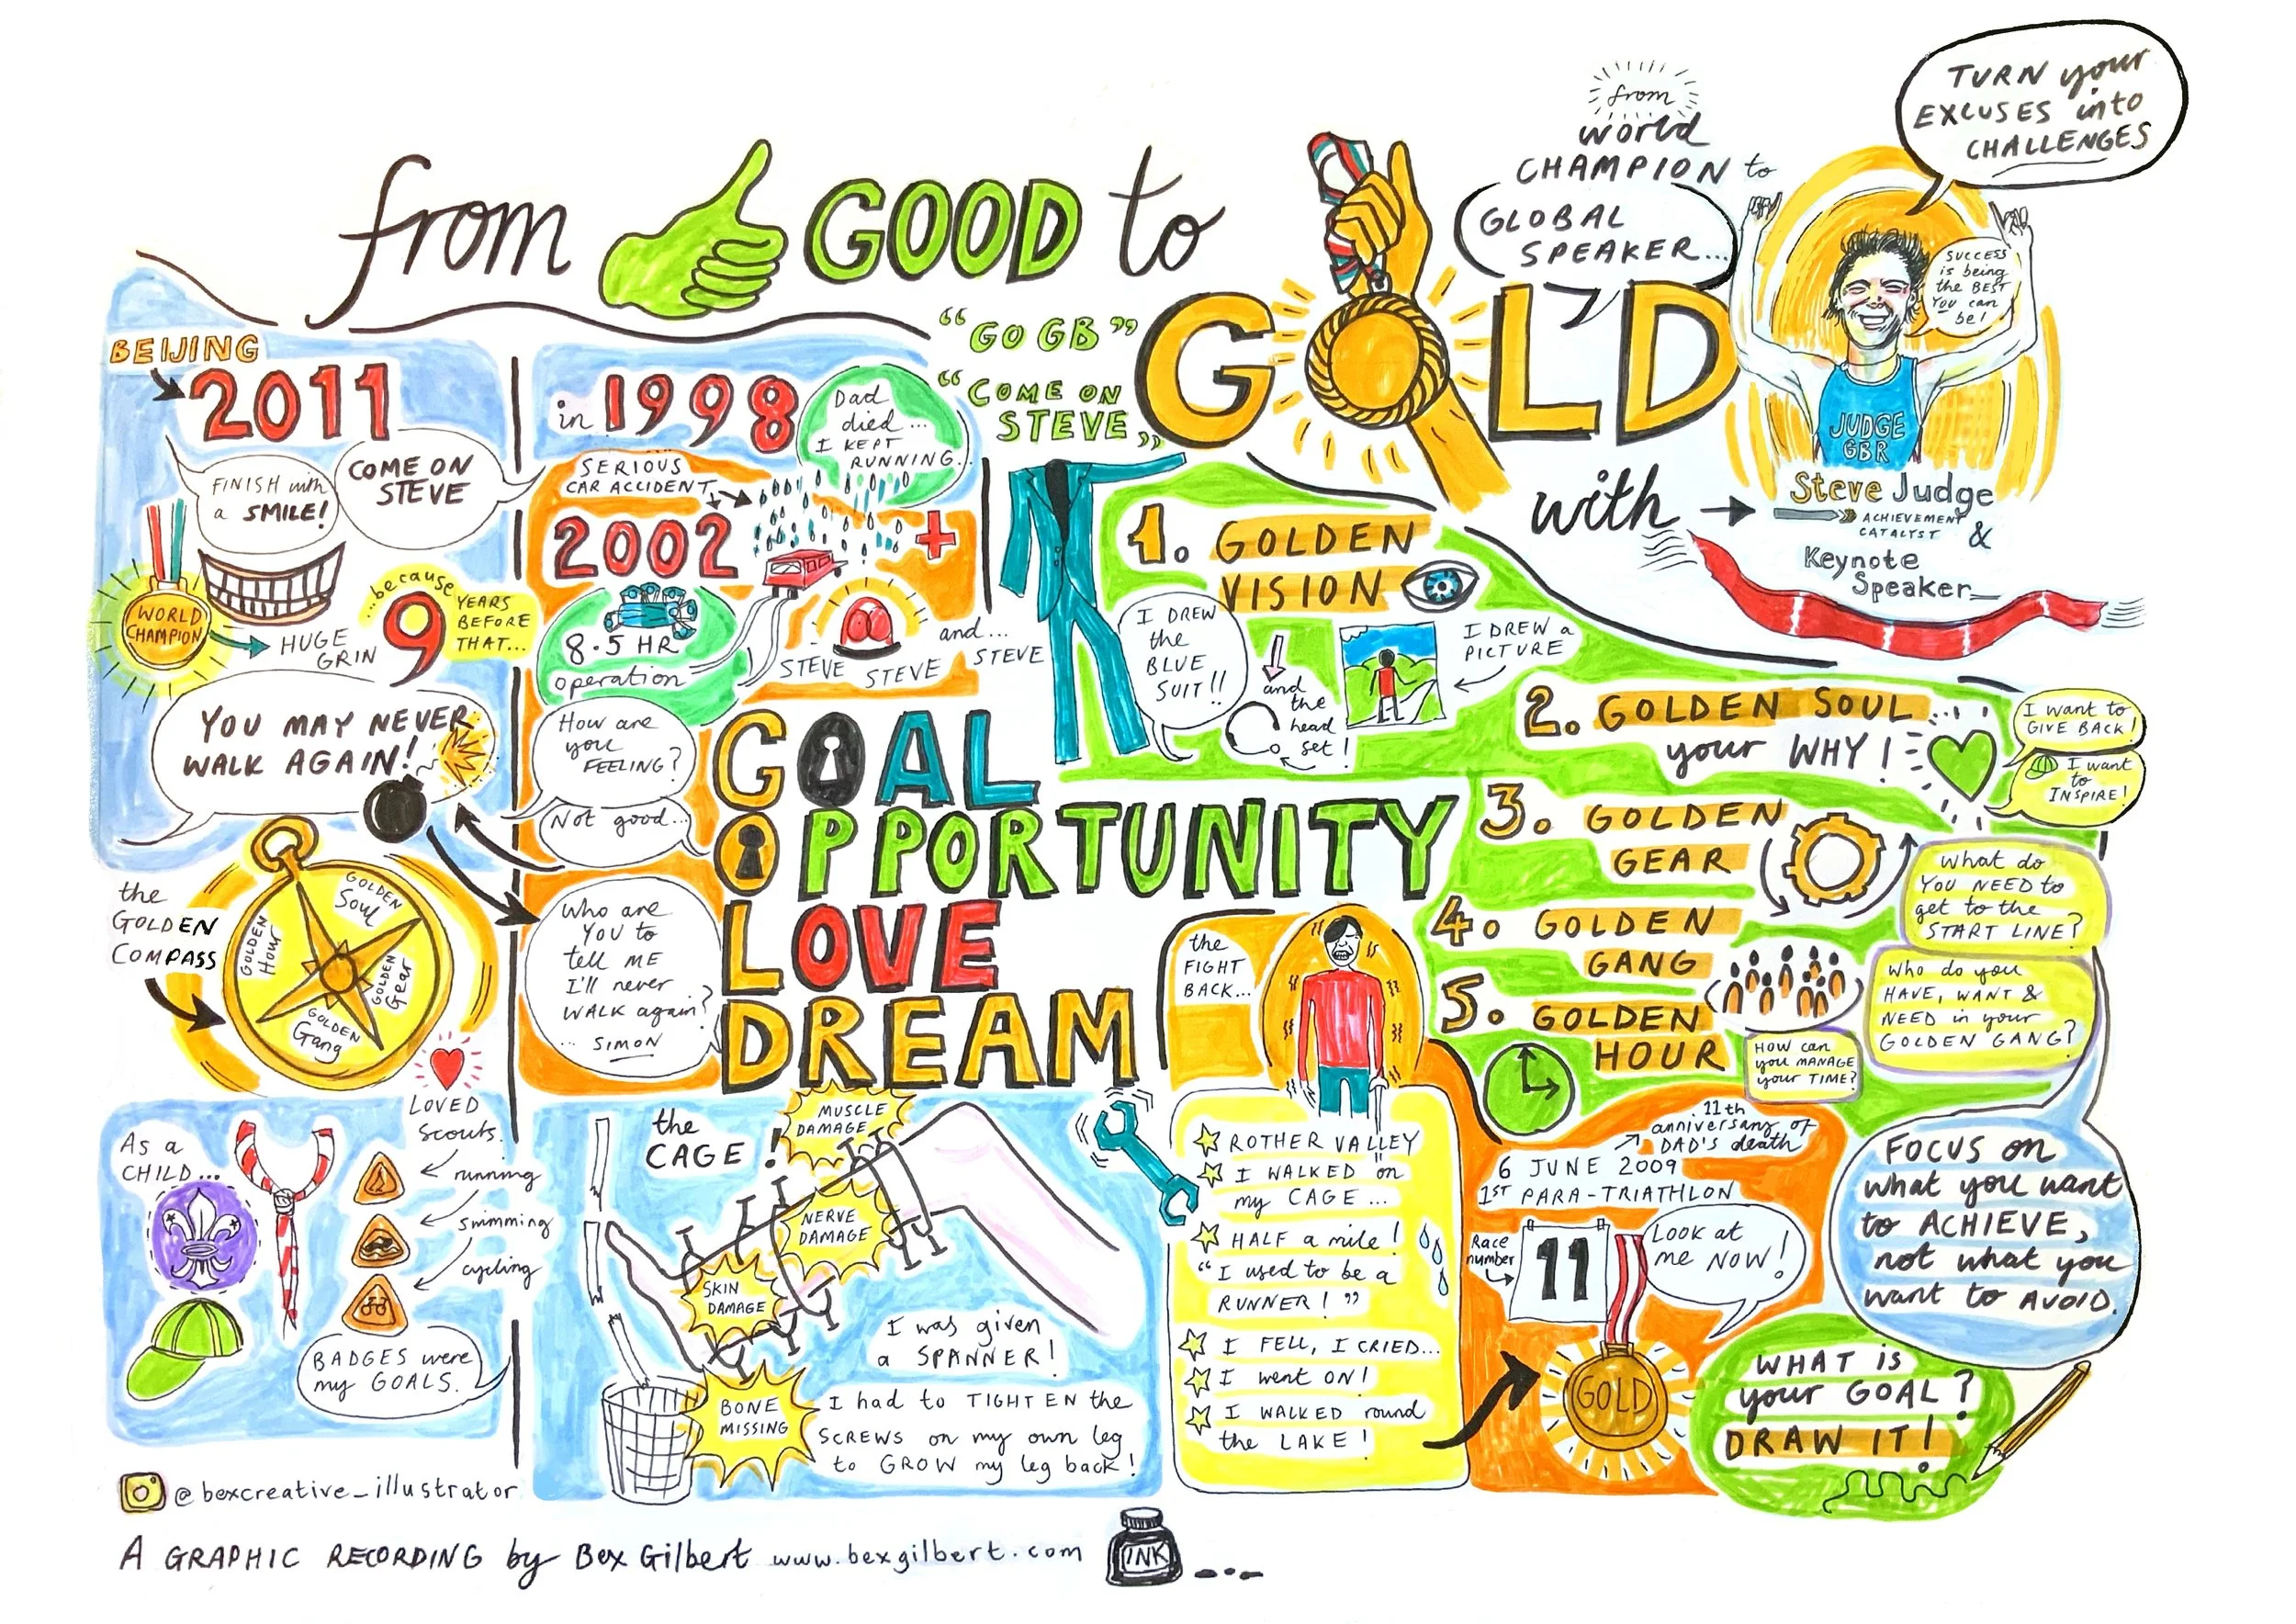 from GOOD to
GOLD
from
world
CHAMPION to
GLOBAL
SPEAKER...
TURN your
EXCUSES into
CHALLENGES
SUCCESS
is being
the BEST
You can
be!
JUDGE
GBR
with
Steve Judge
ACHIEVEMENT
CATALYST
&
Keynote
Speaker
"GO GB"
"COME ON
STEVE"
BEIJING
2011
FINISH with
a SMILE!
COME ON
STEVE
WORLD
CHAMPION
HUGE
GRIN
...because
9
YEARS
BEFORE
THAT...
YOU MAY NEVER
WALK AGAIN!
in 1998
Dad
died...
I KEPT
RUNNING.
SERIOUS
CAR ACCIDENT
2002
8.5 HR
operation
STEVE
STEVE
and...
STEVE
How are
you
FEELING?
Not good...
Who are
YOU to
tell ME
I'll never
WALK again?
... SIMON
GOAL
OPPORTUNITY
LOVE
DREAM
the
GOLDEN
COMPASS
GOLDEN
Soul
GOLDEN
Hour
GOLDEN
Gear
GOLDEN
Gang
As a
CHILD...
LOVED
Scouts.
running
swimming
cycling
BADGES were
my GOALS.
the
CAGE!
MUSCLE
DAMAGE
NERVE
DAMAGE
SKIN
DAMAGE
BONE
MISSING
I was given
a SPANNER!
I had to TIGHTEN the
SCREWS on my own leg
to GROW my leg back!
1. GOLDEN
VISION
I DREW
the
BLUE
SUIT!!
and
the
head
set!
I DREW a
PICTURE
2. GOLDEN SOUL
your WHY!
I want to
GIVE BACK!
I want
to
INSPIRE!
3. GOLDEN
GEAR
What do
YOU NEED to
get to the
START LINE?
4. GOLDEN
GANG
Who do you
HAVE, WANT &
NEED in your
GOLDEN GANG?
5. GOLDEN
HOUR
HOW can
you MANAGE
your TIME?
the
FIGHT
BACK...
ROTHER VALLEY
I WALKED "on
my CAGE...
HALF a mile!
"I used to be a
RUNNER!"
I FELL, I CRIED...
I went ON!
I WALKED round
the LAKE!
11th
anniversary of
DAD'S death
6 JUNE 2009
1ST PARA-TRIATHLON
Race
number
11
Look at
me NOW!
GOLD
FOCUS on
what you want
to ACHIEVE,
not what you
want to AVOID.
WHAT is
your GOAL?
DRAW IT!
@bexcreative_illustrator
A GRAPHIC RECORDING by Bex Gilbert www.bexgilbert.com
INK